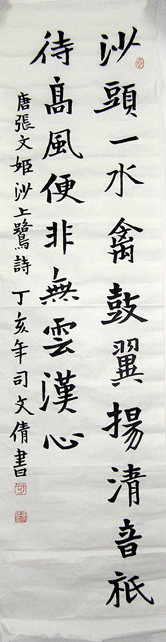 沙頭一水禽鼓翼揚清音祇
待高風便非無雲漢心
唐張文姬沙上鷺詩丁亥年司文倩書